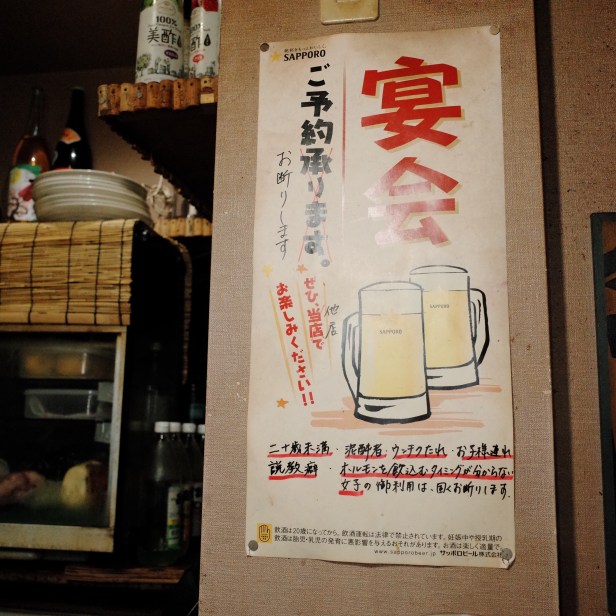 100%
美酢
美酢
飲みもっとおいしく。
SAPPORO
宴会
ご予約承ります。
お断りします
ぜひ、当店で
他店
お楽しみください!!
SAPPORO
SAPPORO
二十歳未満・泥酔者・ウンチクたれ・お子様連れ
説教癖・ホルモンを飲込むタイミングが分からない
女子の御利用は、固くお断りします。
飲酒は20歳になってから。飲酒運転は法律で禁止されています。妊娠中や授乳期の
飲酒は胎児・乳児の発育に悪影響を与えるおそれがあります。お酒は楽しく適量で。
www.sapporobeer.jp サッポロビール株式会社